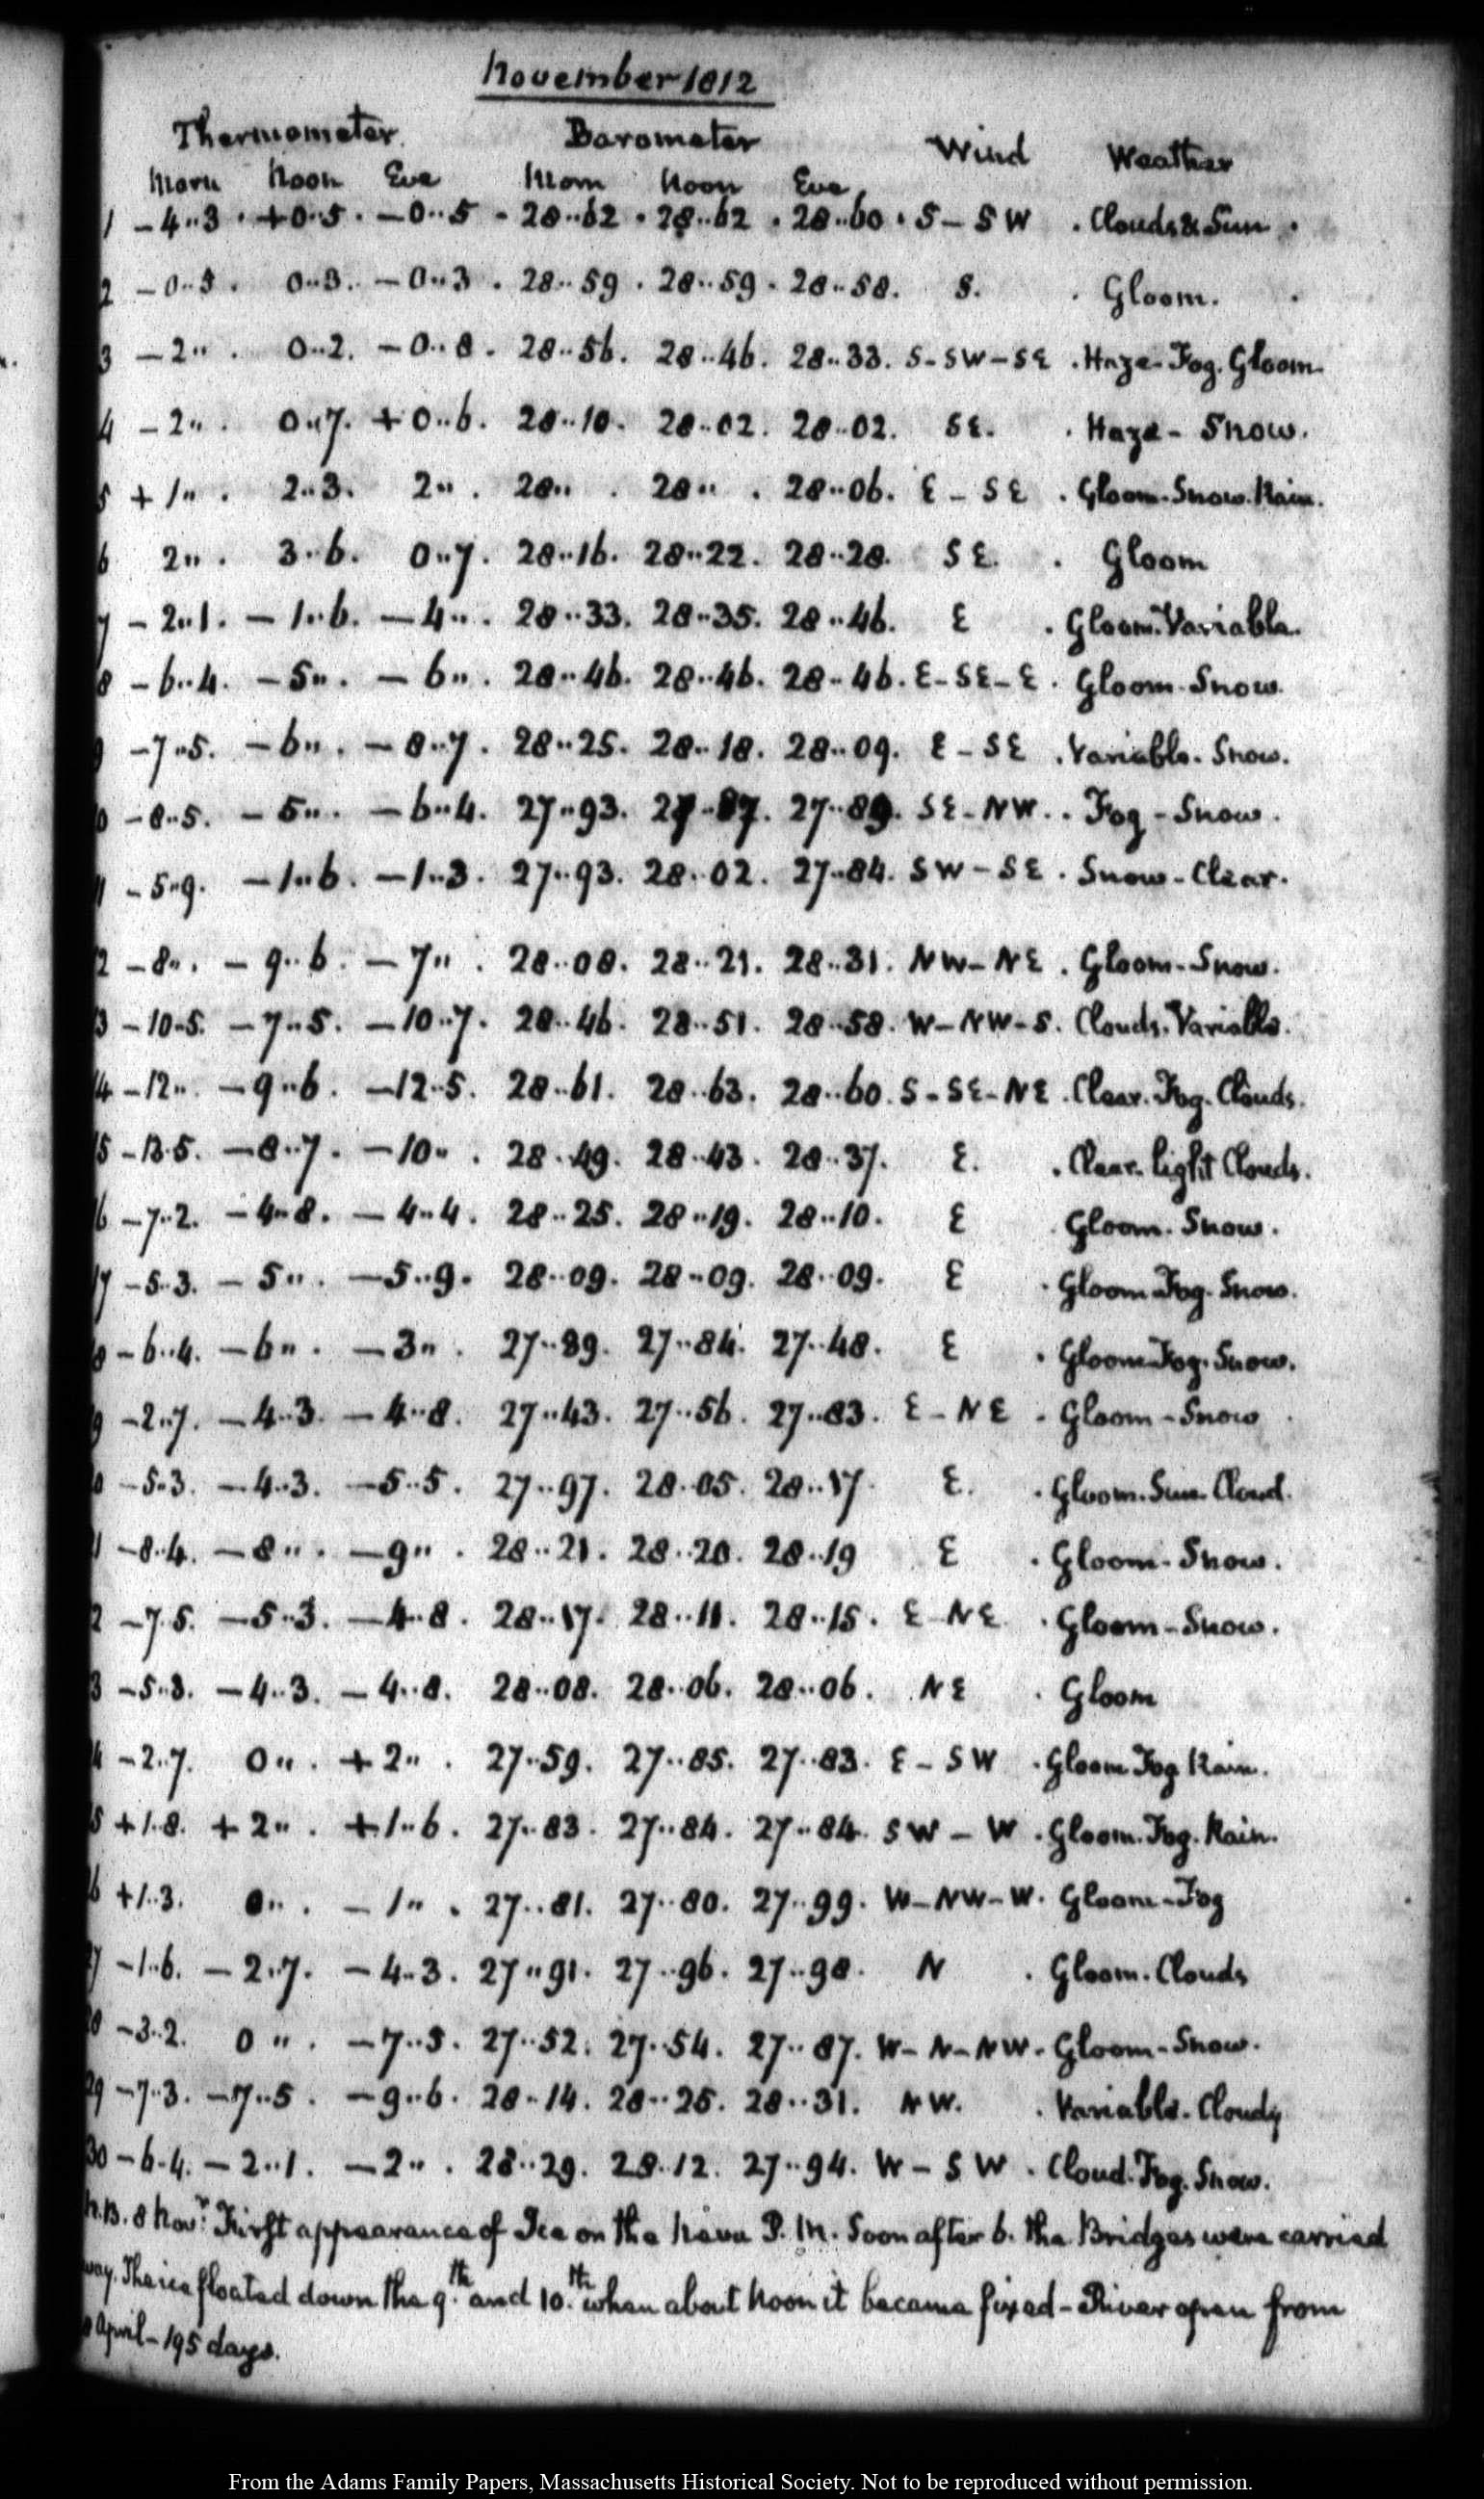 November 1812
Thermometer. Barometer Wind Weather
Morn Noon Eve Morn Noon Eve.
1 -4..3 . +0..5 . -0..5 . 28..62 . 28..62 . 28..60 . S-SW . Clouds & Sun .
2 -0..5 . 0..3. -0..3 . 28..59 . 28..59 . 28..58. S. . Gloom. .
3 -2.. . 0..2. -0..8 . 28..56. 28..46. 28..33. S-SW-SE . Haze-Fog. Gloom-
4 -2.. . 0..7. +0..6. 28..10. 28..02. 28..02. SE. . Haze- Snow.
5 +1.. . 2..3. 2.. . 28.. . 28.. . 28..06. E-SE . Gloom-Snow. Rain.
6 2.. . 3..6. 0..7. 28..16. 28..22. 28..28. SE. . Gloom
7 -2..1. -1..6. -4.. . 28..33. 28..35. 28..46. E . Gloom. Variable.
8 -6..4. -5.. . -6.. . 28..46. 28..46. 28..46. E-SE-E . Gloom-Snow.
9 -7..5. -6.. . -8..7 . 28..25. 28..18. 28..09. E-SE . Variable. Snow.
0 -8..5. -5.. . -6..4. 27..93. 27..87. 27..89. SE-NW. . Fog-Snow.
1 -5..9. -1..6. -1..3. 27..93. 28..02. 27..84. SW-SE . Snow-Clear.
2 -8.. . -9..6 . -7.. . 28..08. 28..21. 28..31. NW-NE . Gloom-Snow.
3 -10..5. -7..5. -10..7. 28..46. 28..51. 28..58. W-NW-S. Clouds. Variable.
4 -12.. -9..6. -12..5. 28..61. 28..63. 28..60. S-SE-NE . Clear. Fog. Clouds.
5 -13..5. -8..7. -10.. . 28..49. 28..43. 28..37. E. . Clear. light Clouds.
6 -7..2. -4..8. -4..4. 28..25. 28..19. 28..10. E Gloom. Snow.
7 -5..3. -5.. . -5..9. 28..09. 28..09. 28..09. E . Gloom Fog. Snow.
8 -6..4. -6.. . -3.. . 27..89. 27..84. 27..48. E . Gloom Fog. Snow.
9 -2..7. -4..3. -4..8. 27..43. 27..56. 27..83. E-NE . Gloom-Snow .
0 -5..3. -4..3. -5..5. 27..97. 28..05. 28..17. E. . Gloom. Sun. Cloud.
1 -8..4. -8.. . -9.. . 28..21. 28..20. 28..19 E . Gloom-Snow.
2 -7..5. -5..3. -4..8. 28..17. 28..11. 28..15. E-NE . Gloom-Snow.
3 -5..3. -4..3. -4..8. 28..08. 28..06. 28..06. NE . Gloom
4 -2..7. 0.. . +2.. . 27..59. 27..85. 27..83. E-SW . Gloom Fog Rain.
5 +1..8. +2.. . +1..6. 27..83. 27..84. 27..84. SW-W . Gloom. Fog. Rain.
6 +1..3. 0.. . -1.. . 27..81. 27..80. 27..99. W-NW-W. Gloom-Fog
7 -1..6. -2..7. -4..3. 27..91. 27..96. 27..98. N . Gloom. Clouds
8 -3..2. 0 .. . -7..5. 27..52. 27..54. 27..87. W-N-NW. Gloom-Snow.
29 -7..3. -7..5 . -9..6. 28..14. 28..25. 28..31. NW. . Variable. Cloudy
30 -6..4. -2..1. -2.. . 28..29. 28..12. 27..94. W-SW . Cloud. Fog. Snow.
N.B. 8 Novr: First appearance of Ice on the Neva P.M. Soon after 6. the Bridges were carried
way. The ice floated down the 9.th and 10.th when about Noon it became fixed-River open from
April-195 days.
From the Adams Family Papers, Massachusetts Historical Society. Not to be reproduced without permission.